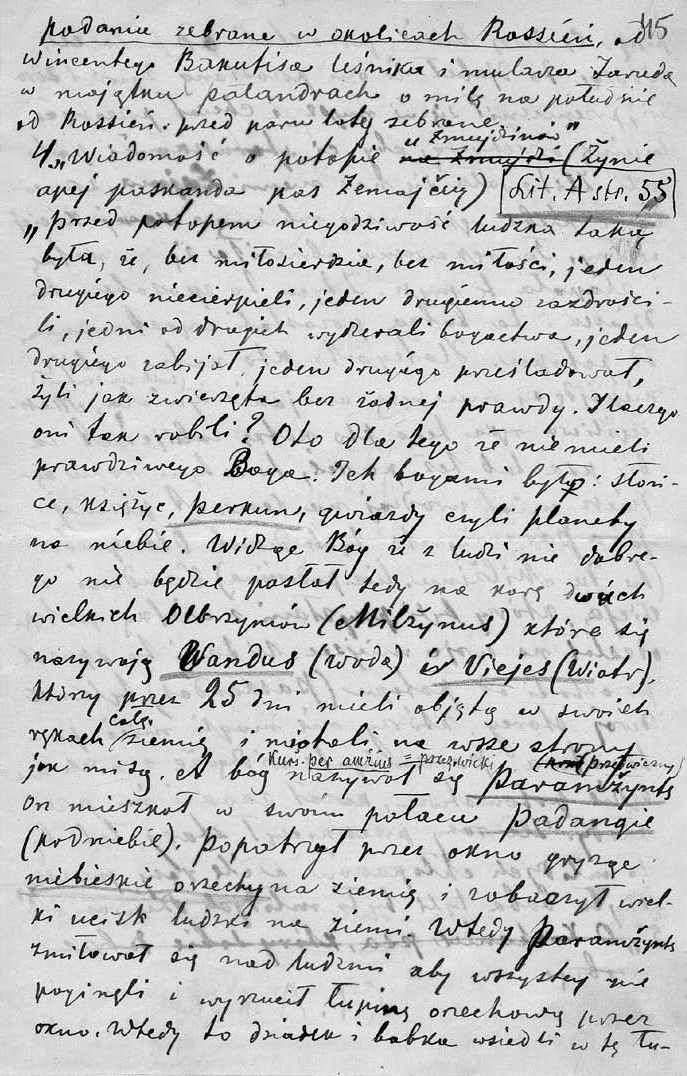 15
podanie zebrane w okolicach Rossień, od
Wincentego Bakutisa leśnika i mularza Zaruda
w majątku palandrach o milę na południe
od Rossień. przed paru laty zebrane.
4. „Wiadomość o potopie u Żmujdzinów" na Żmujdzi (Żynie
apej paskanda pas Żemajčiy) Lit. A str. 55
„przed potopem niegodziwość ludzka taka
była, że, bez miłosierdzia, bez miłości, jeden
drugiego niecierpieli, jeden drugiemu zazdrości-
li, jedni od drugich wydzierali bogactwa, jeden
drugiego zabijał, jeden drugiego prześladował,
żyli jak zwierzęta bez żadnej prawdy. Dlaczego
oni tak robili? Oto dla tego że nie mieli
prawdziwego Boga. Ich bogami były: słoń-
ce, księżyc, perkun, gwiazdy czyli planety
na niebie. Widząc Bóg że z ludzi nic dobre-
go nie będzie posłał tedy na karę dwóch
wielkich Olbrzymów (Milžynus) które się
nazywają Wandus (woda) ir Viejes (Wiatr),
którzy przez 25 dni mieli objętą w swoich
rękach całą ziemię i miotali na wsze strony
jak misą. A bóg nazywał się Paramžynts
Kurs. per amžius = przezwiecki (przedwieczny)
on mieszkał w swoim pałacu padangie
(podniebie). Popatrzył przez okno gryząc
niebieskie orzechy na ziemię i zobaczył wiel-
ki ucisk ludzki na ziemi. Wtedy Paramžynts
zmiłował się nad ludźmi aby wszystcy nie
poginęli i wyrzucił łupinę orzechową przez
okno. Wtedy to dziadek i babka wsiedli w tę łu-